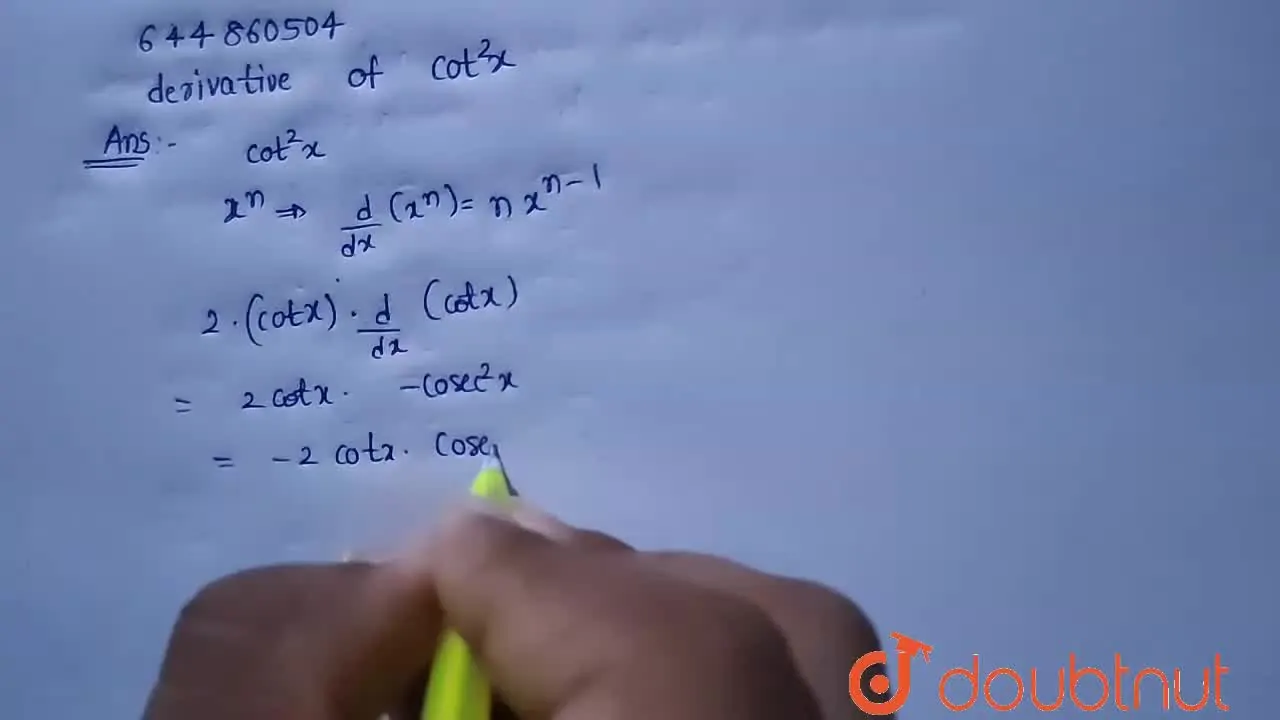 644860504
derivative of cot²x
Ans:- cot²x
xⁿ ⇒ d/dx (xⁿ) = n xⁿ⁻¹
2·(cotx)·d/dx (cotx)
= 2 cotx· -cosec²x
= -2 cotx· cose
doubtnut